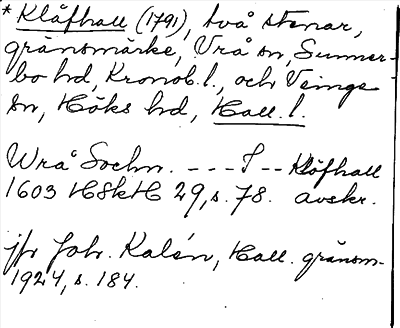 * Klåfhall (1791), två stenar,
gränsmärke, Vrå sn, Sunner-
bo hd, Kronob. l., och Veinge
sn, Höks hd, Hall. l.
Wrå Sochn. --- I -- Klöfhall
1603 HSkH 29, s. 78. avskr.
jfr Joh. Kalén, Hall. gränsm.
1924, s. 184.